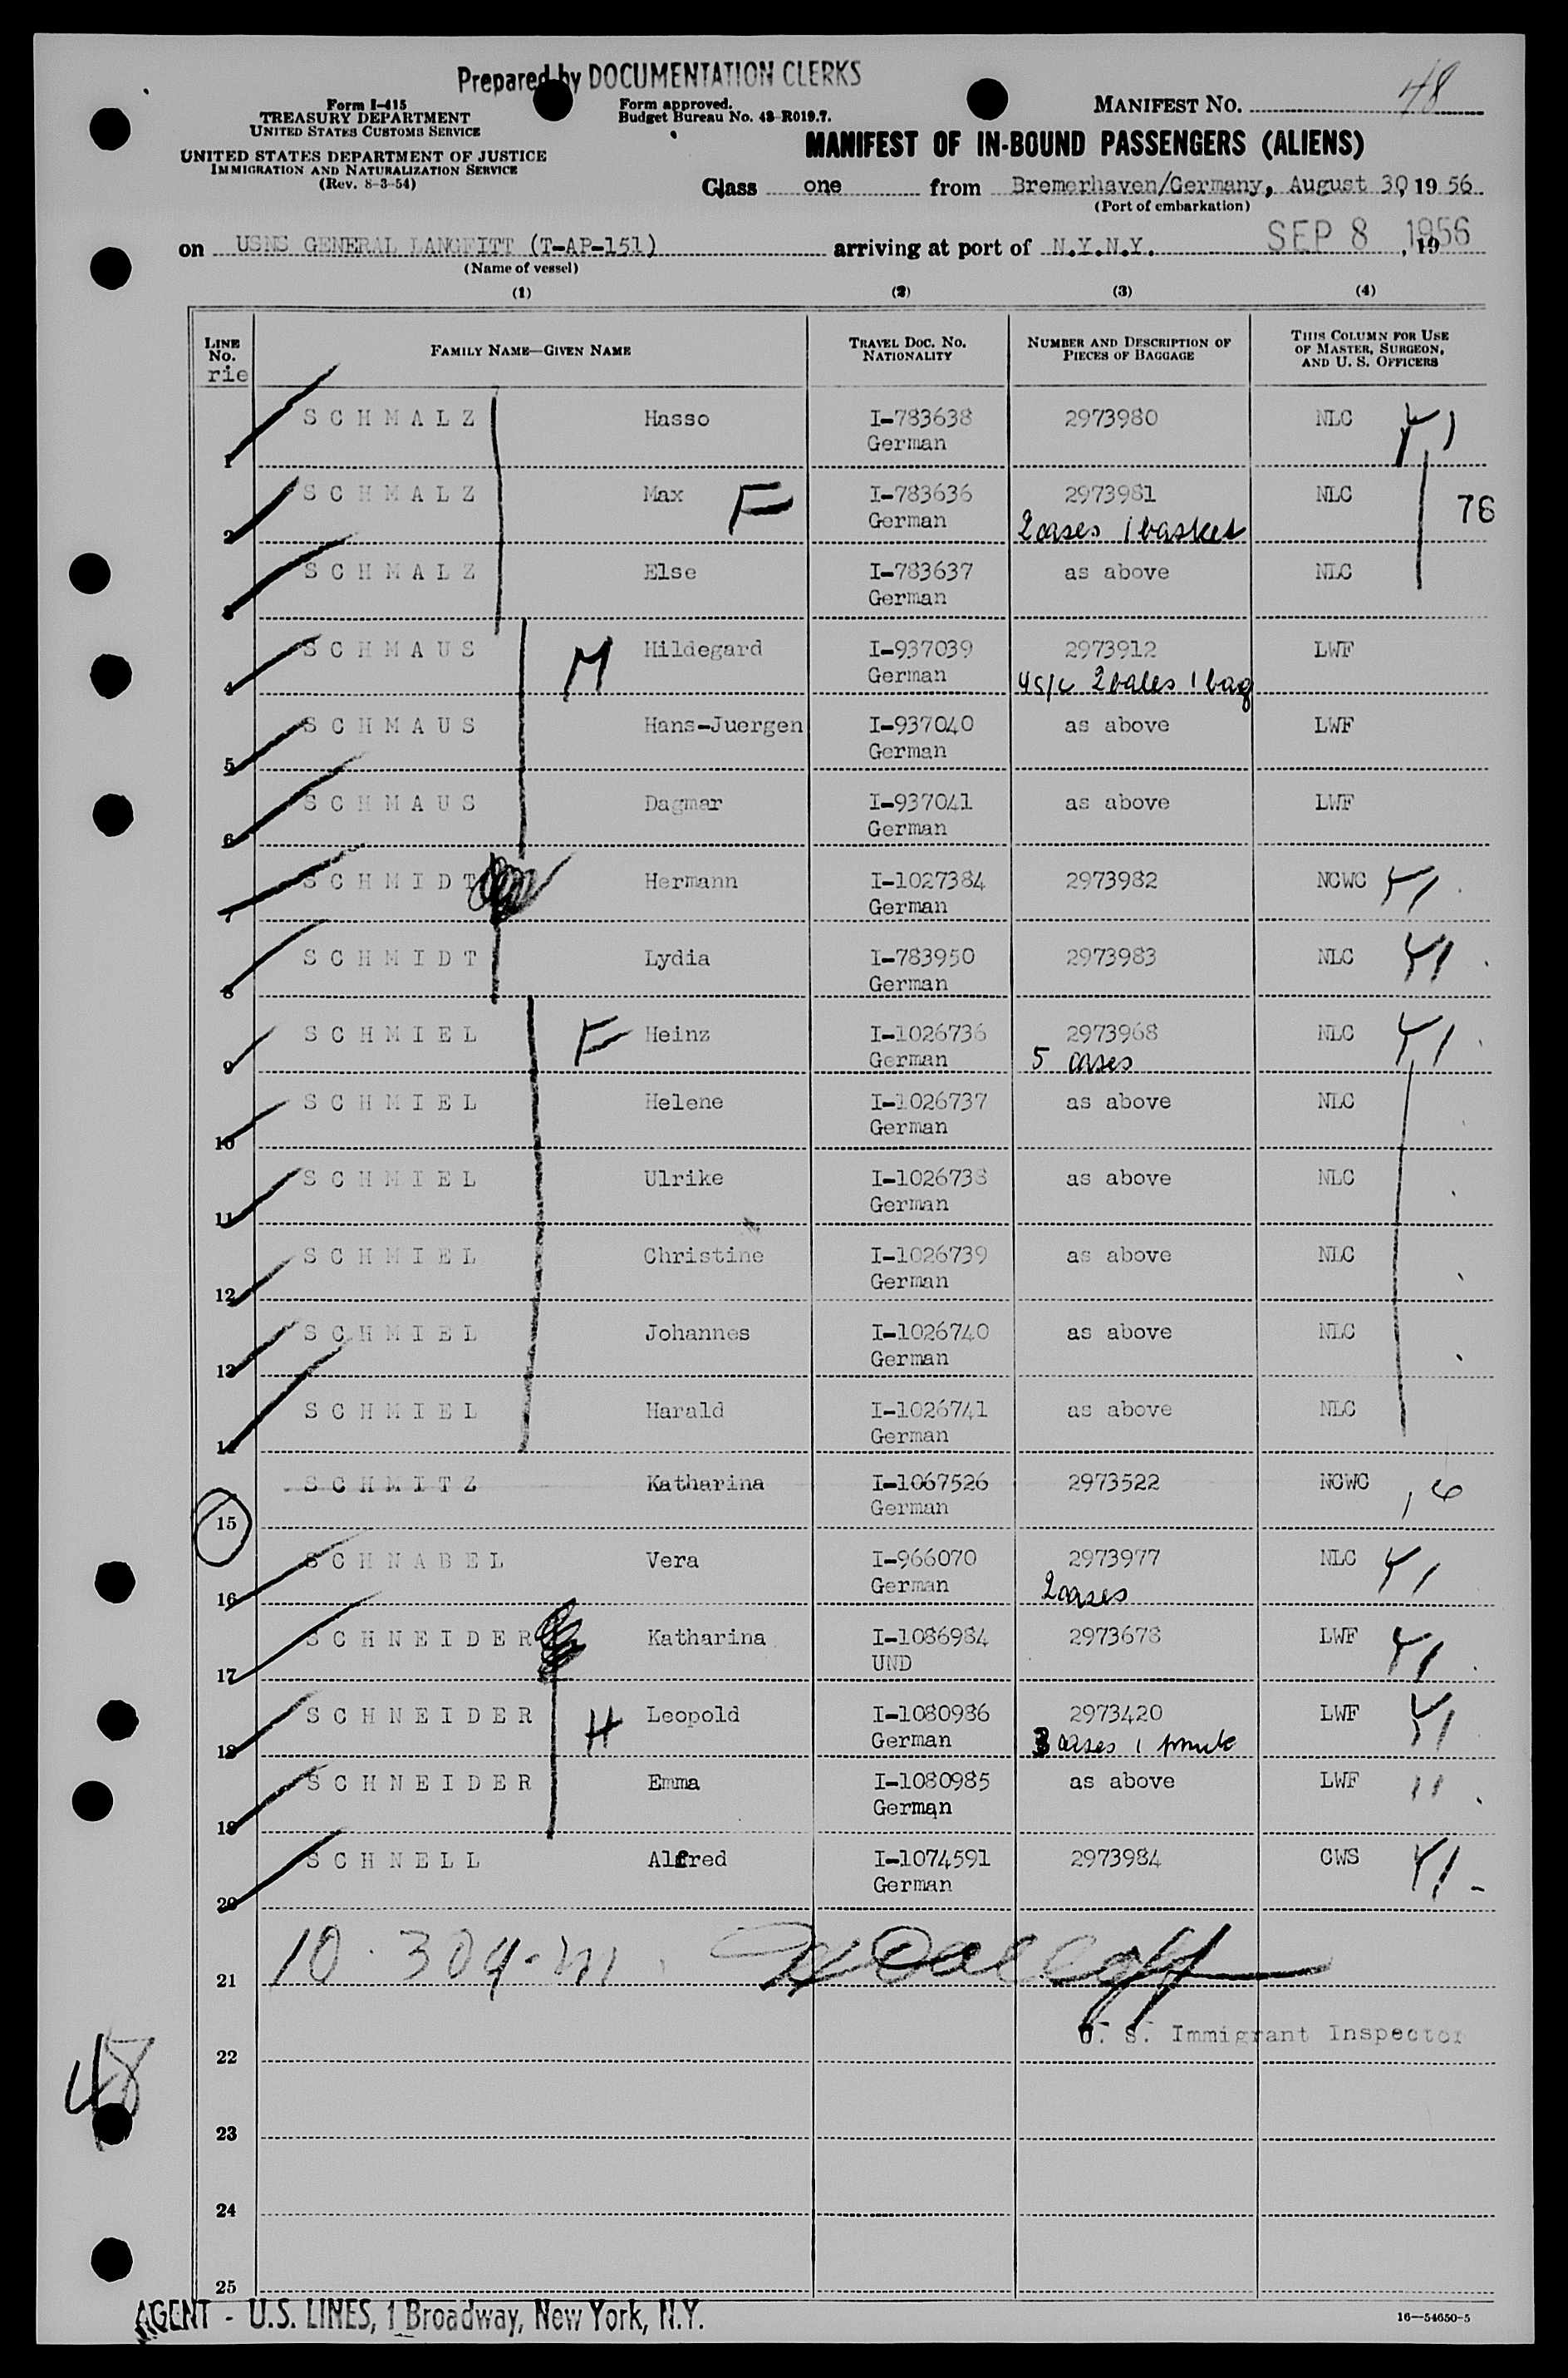 Prepared by DOCUMENTATION CLERKS
Form I-415
TREASURY DEPARTMENT
UNITED STATES CUSTOMS SERVICE
UNITED STATES DEPARTMENT OF JUSTICE
IMMIGRATION AND NATURALIZATION SERVICE
(Rev. 8-3-54)
Form approved.
Budget Bureau No. 43-R019.7.
MANIFEST NO. 48
MANIFEST OF IN-BOUND PASSENGERS (ALIENS)
Class one from Bremerhaven/Germany, August 30, 19 56
(Port of embarkation)
on USNS GENERAL LANGFITT (T-AP-151) arriving at port of N.Y.N.Y. SEP 8 1956, 19
(Name of vessel)
(1) (2) (3) (4)
LINE NO. FAMILY NAME—GIVEN NAME TRAVEL DOC. NO. NATIONALITY NUMBER AND DESCRIPTION OF PIECES OF BAGGAGE THIS COLUMN FOR USE OF MASTER, SURGEON, AND U. S. OFFICERS
rie
1 SCHMALZ Hasso I-783638 2973980 NLC
German
2 SCHMALZ Max F I-783636 2973981 NLC 76
German 2 cases 1 basket
3 SCHMALZ Else I-783637 as above NLC
German
4 SCHMAUS M Hildegard I-937039 2973912 LWF
German 4 s/c 2 bales 1 bag
5 SCHMAUS Hans-Juergen I-937040 as above LWF
German
6 SCHMAUS Dagmar I-937041 as above LWF
German
7 SCHMIDT Hermann I-1027384 2973982 NCWC
German
8 SCHMIDT Lydia I-783950 2973983 NLC
German
9 SCHMIEL F Heinz I-1026736 2973968 NLC
German 5 cases
10 SCHMIEL Helene I-1026737 as above NLC
German
11 SCHMIEL Ulrike I-1026738 as above NLC
German
12 SCHMIEL Christine I-1026739 as above NLC
German
13 SCHMIEL Johannes I-1026740 as above NLC
German
14 SCHMIEL Harald I-1026741 as above NLC
German
15 SCHMITZ Katharina I-1067526 2973522 NCWC
German
16 SCHNABEL Vera I-966070 2973977 NLC
German 2 cases
17 SCHNEIDER Katharina I-1086984 2973678 LWF
UND
18 SCHNEIDER H Leopold I-1080986 2973420 LWF
German 3 cases 1 trunk
19 SCHNEIDER Emma I-1080985 as above LWF 11
German
20 SCHNELL Alfred I-1074591 2973984 CWS
German
21
U. S. Immigrant Inspector
22
48
23
24
25
AGENT - U.S. LINES, 1 Broadway, New York, N.Y.
16—54650-5